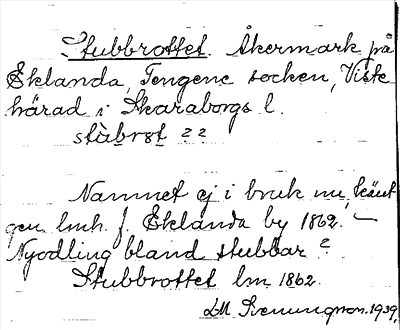 Stubbrottet. Åkermark på
Eklanda, Tengene socken, Viste
härad i Skaraborgs l.
stùbrɘt 22
Namnet ej i bruk nu, känt
gen. lmh. f. Eklanda by 1862. –
Nyodling bland stubbar?
Stubbrottet lm 1862.
LM Svenungson. 1939,